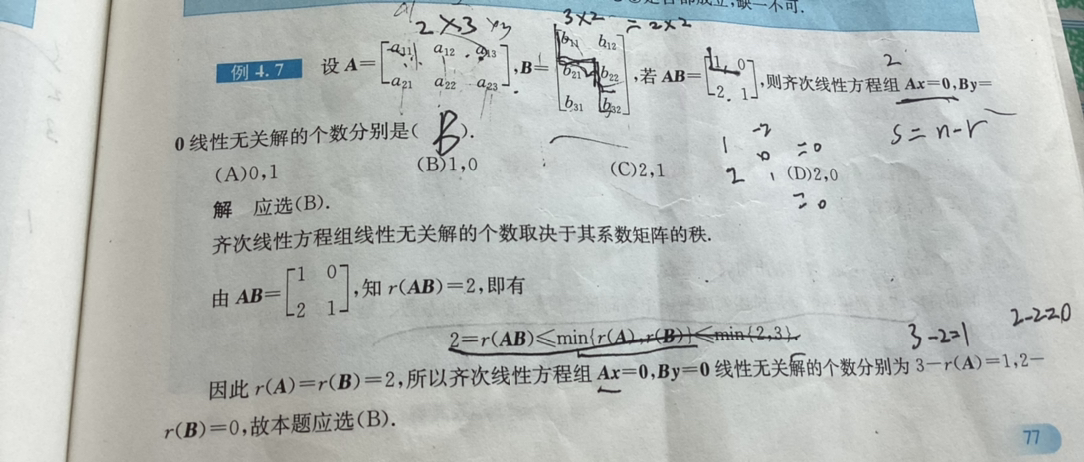 是否都成立,缺一不可.
2×3
3×2 = 2×2
例 4.7 设 A=[a₁₁ a₁₂ a₁₃; a₂₁ a₂₂ a₂₃], B=[b₁₁ b₁₂; b₂₁ b₂₂; b₃₁ b₃₂],若 AB=[1 0; 2 1],则齐次线性方程组 Ax=0,By=
2
0 线性无关解的个数分别是( B ).
s=n-r
1 0 =0
2 1 =0
-2
(A)0,1 (B)1,0 (C)2,1 (D)2,0
解 应选(B).
齐次线性方程组线性无关解的个数取决于其系数矩阵的秩.
由 AB=[1 0; 2 1],知 r(AB)=2,即有
2=r(AB)≤min{r(A),r(B)}≤min{2,3}.
3-2=1
2-2=0
因此 r(A)=r(B)=2,所以齐次线性方程组 Ax=0,By=0 线性无关解的个数分别为 3-r(A)=1,2-
r(B)=0,故本题应选(B).
77